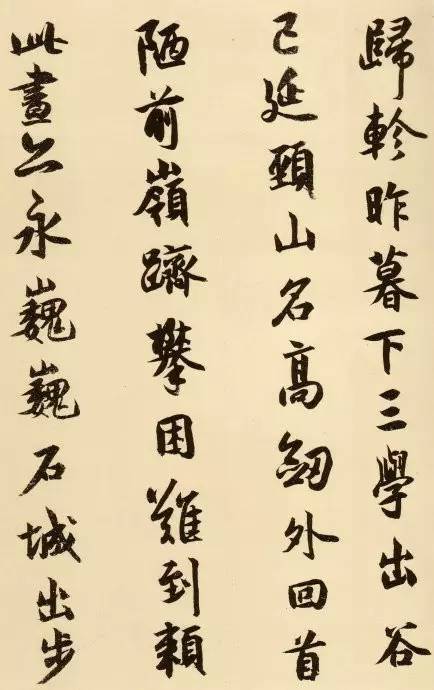 歸軫昨暮下三學出谷
已延頸山名高劒外回首
陋前嶺躋攀困難到賴
此晝亦永巍巍石城出步